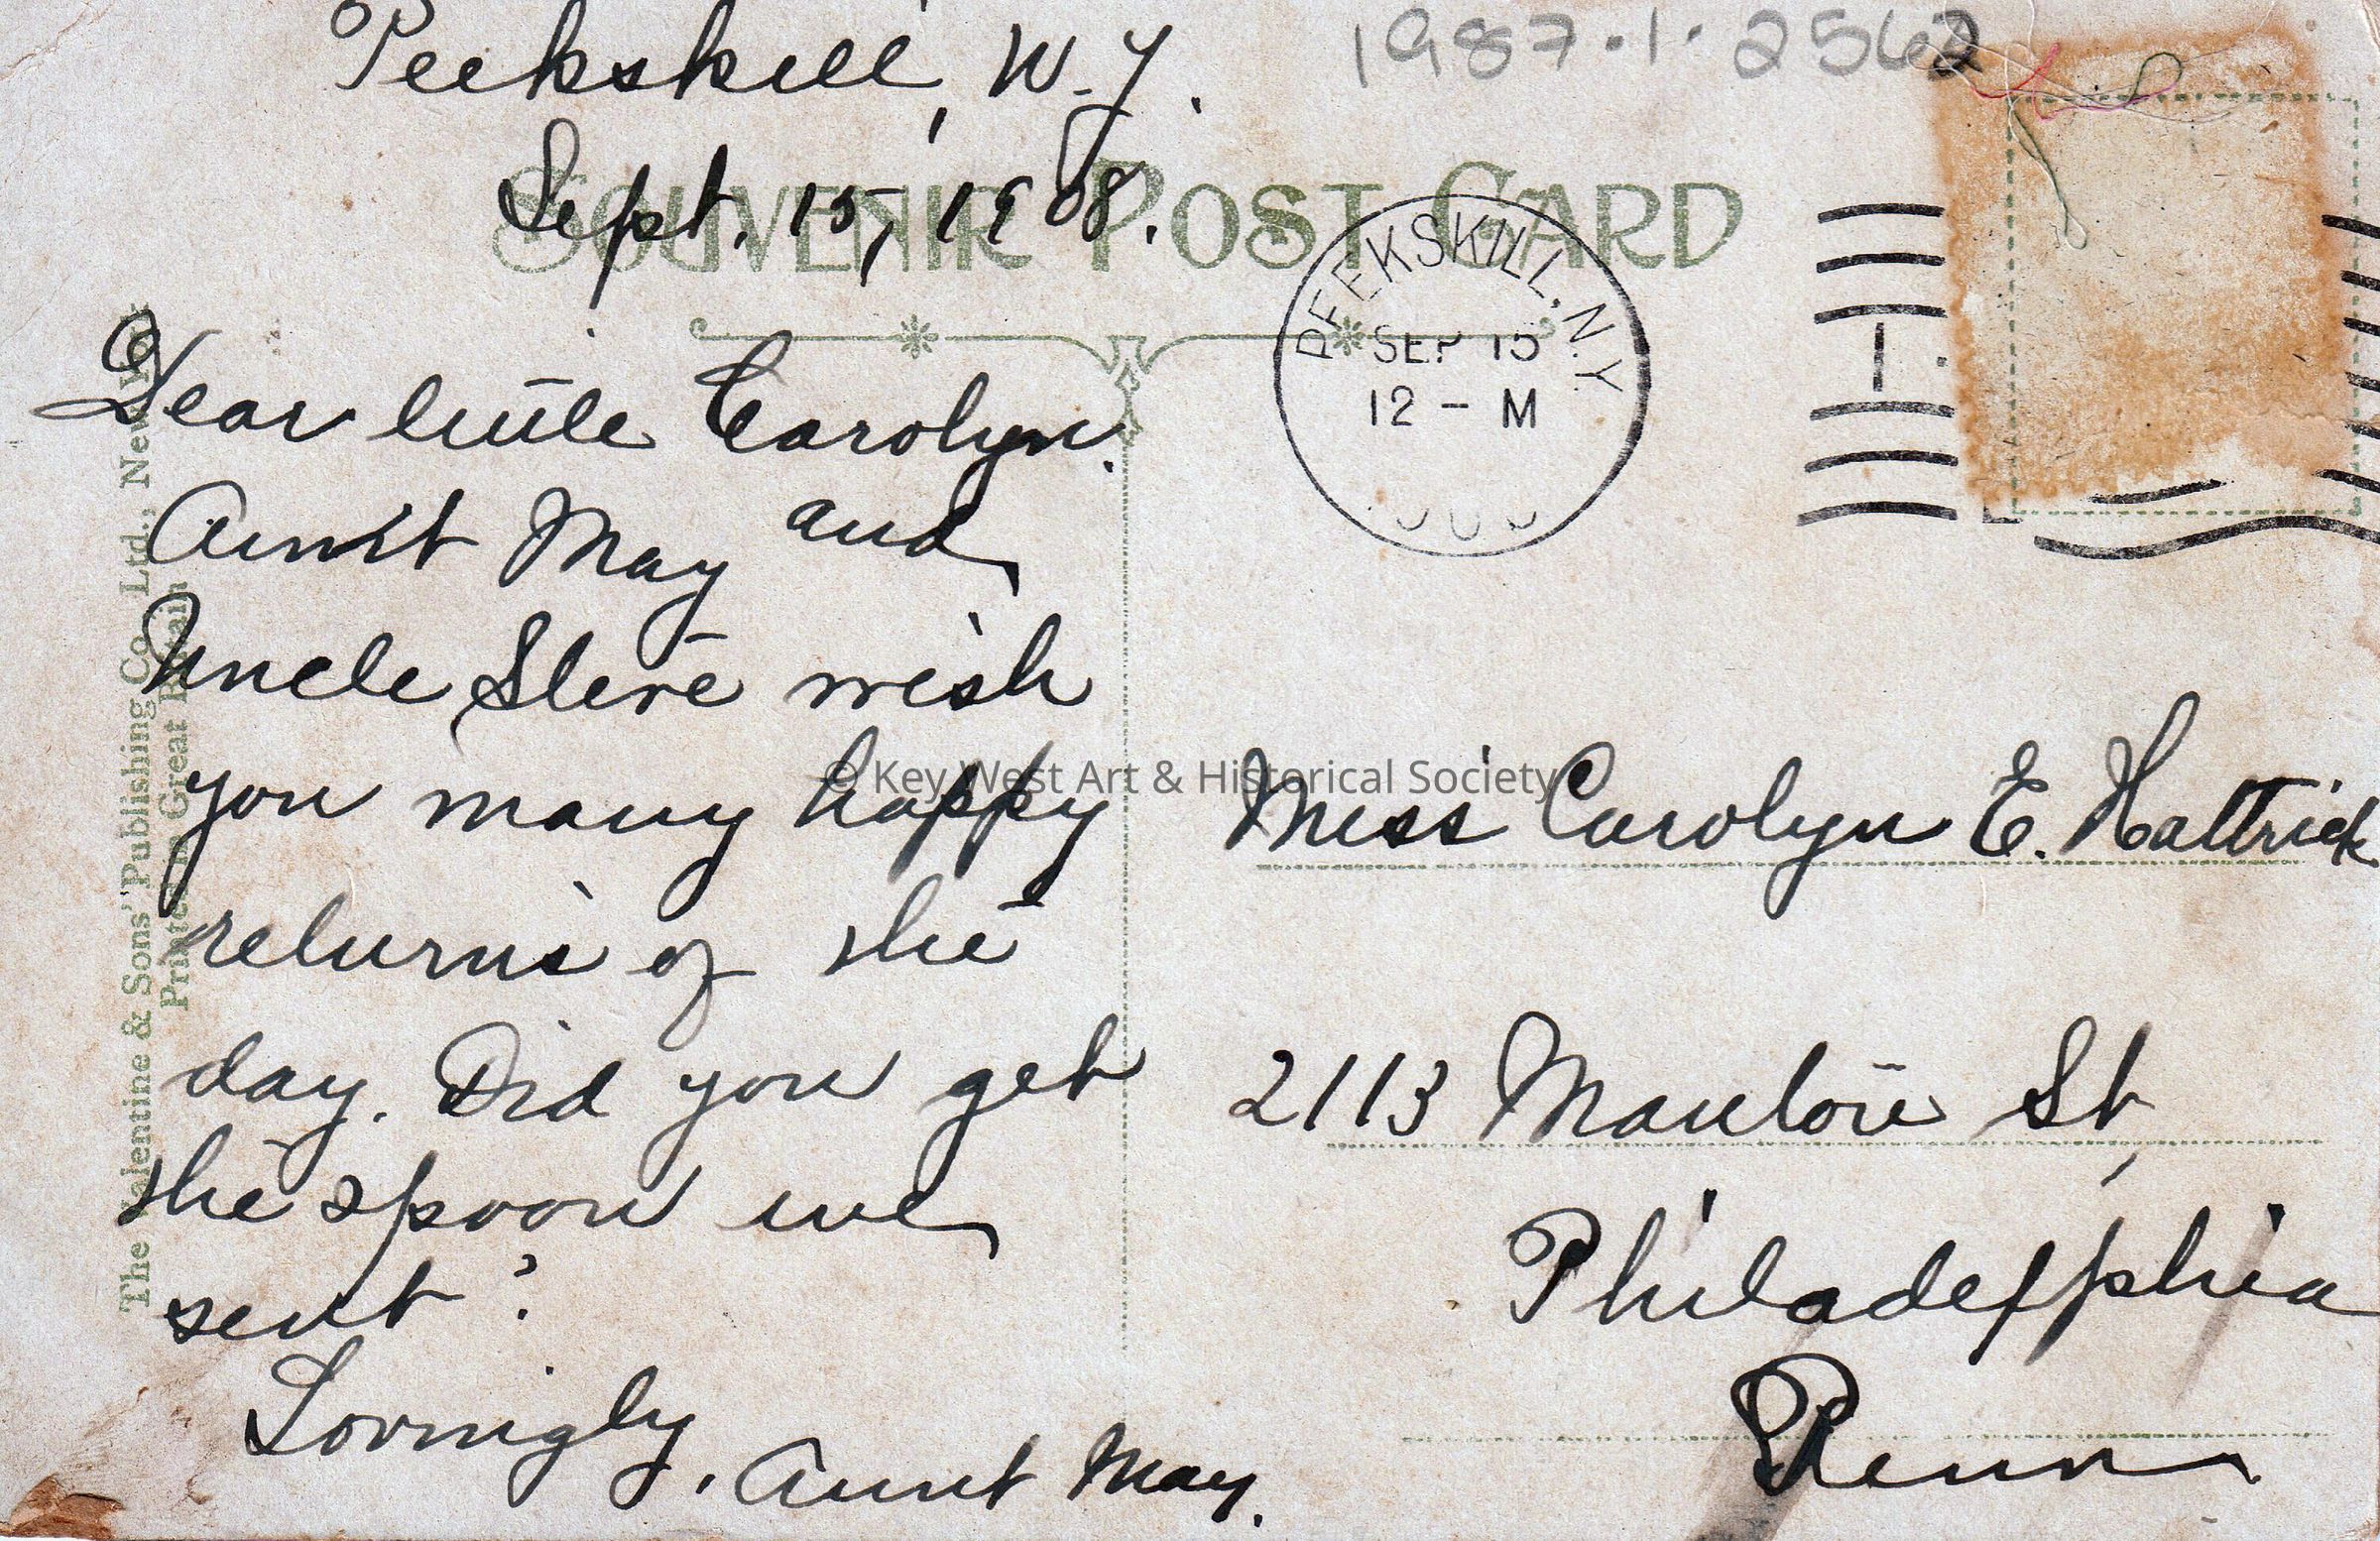 Peekskill, N.Y.
1987.1.2562
Sept. 15, 1908.
SOUVENIR POST CARD
PEEKSKILL, N.Y.
SEP 15
12 - M
1
Dear little Carolyn.
Aunt May and
Uncle Steve wish
you many happy
returns of the
day. Did you get
the spoon we
sent?
Lovingly,
Aunt May.
Miss Carolyn E. Hattrick
2113 St,
Philadelphia
Penn
The Valentine & Sons' Publishing Co., Ltd., New York
Printed in Great Britain
© Key West Art & Historical Society